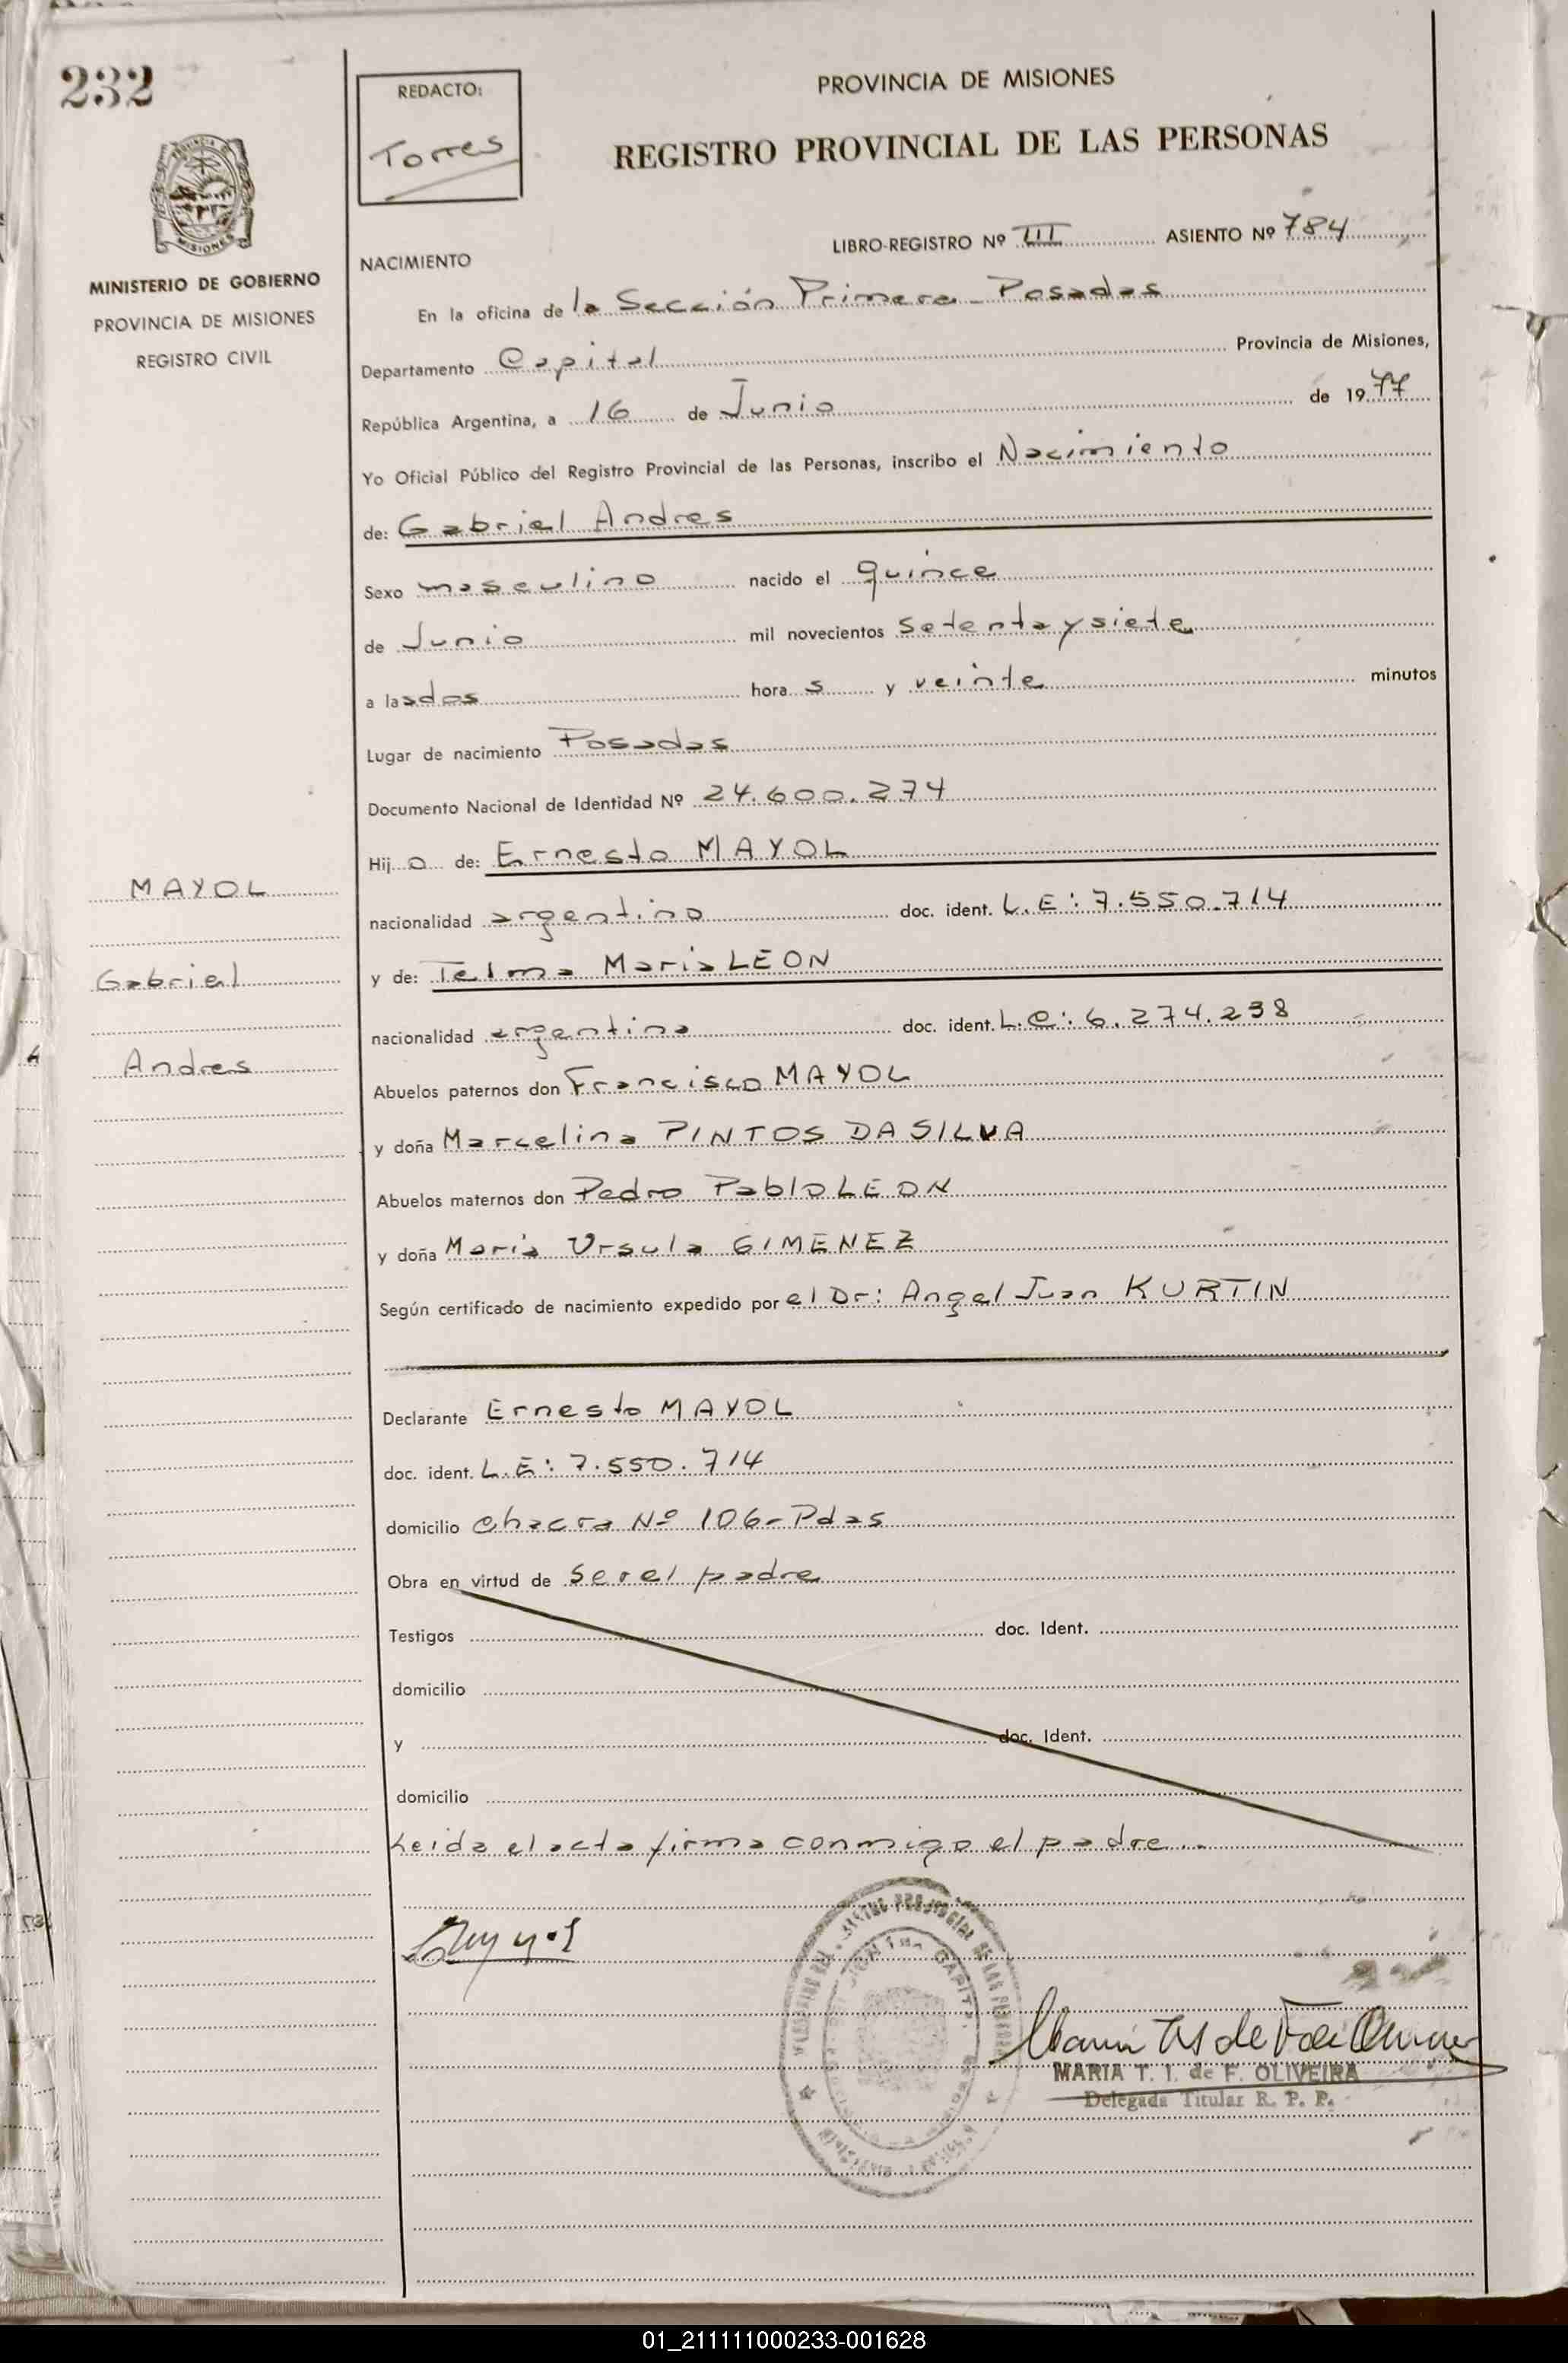 232
REDACTO:
Torres
PROVINCIA DE MISIONES
REGISTRO PROVINCIAL DE LAS PERSONAS
MISIONES
MINISTERIO DE GOBIERNO
PROVINCIA DE MISIONES
REGISTRO CIVIL
LIBRO-REGISTRO Nº III ASIENTO Nº 784
NACIMIENTO
En la oficina de la Sección Primera - Posadas
Departamento Capital Provincia de Misiones,
República Argentina, a 16 de Junio de 1977
Yo Oficial Público del Registro Provincial de las Personas, inscribo el Nacimiento
de: Gabriel Andres
Sexo masculino nacido el quince
de Junio mil novecientos setenta y siete
a las dos hora s y veinte minutos
Lugar de nacimiento Posadas
Documento Nacional de Identidad Nº 24.600.274
Hij o de: Ernesto MAYOL
nacionalidad argentino doc. ident. L.E: 7.550.714
y de: Telma Maria LEON
nacionalidad argentina doc. ident. L.C: 6.274.238
Abuelos paternos don Francisco MAYOL
y doña Marcelina PINTOS DA SILVA
Abuelos maternos don Pedro Pablo LEON
y doña Maria Ursula GIMENEZ
Según certificado de nacimiento expedido por el Dr: Angel Juan KURTIN
MAYOL
Gabriel
Andres
Declarante Ernesto MAYOL
doc. ident. L.E: 7.550.714
domicilio Chacra Nº 106- Pdas
Obra en virtud de ser el padre
Testigos doc. Ident.
domicilio
y doc. Ident.
domicilio
Leida el acta firma conmigo el padre...
MARIA T. I. de F. OLIVEIRA
Delegada Titular R. P. P.
01_211111000233-001628